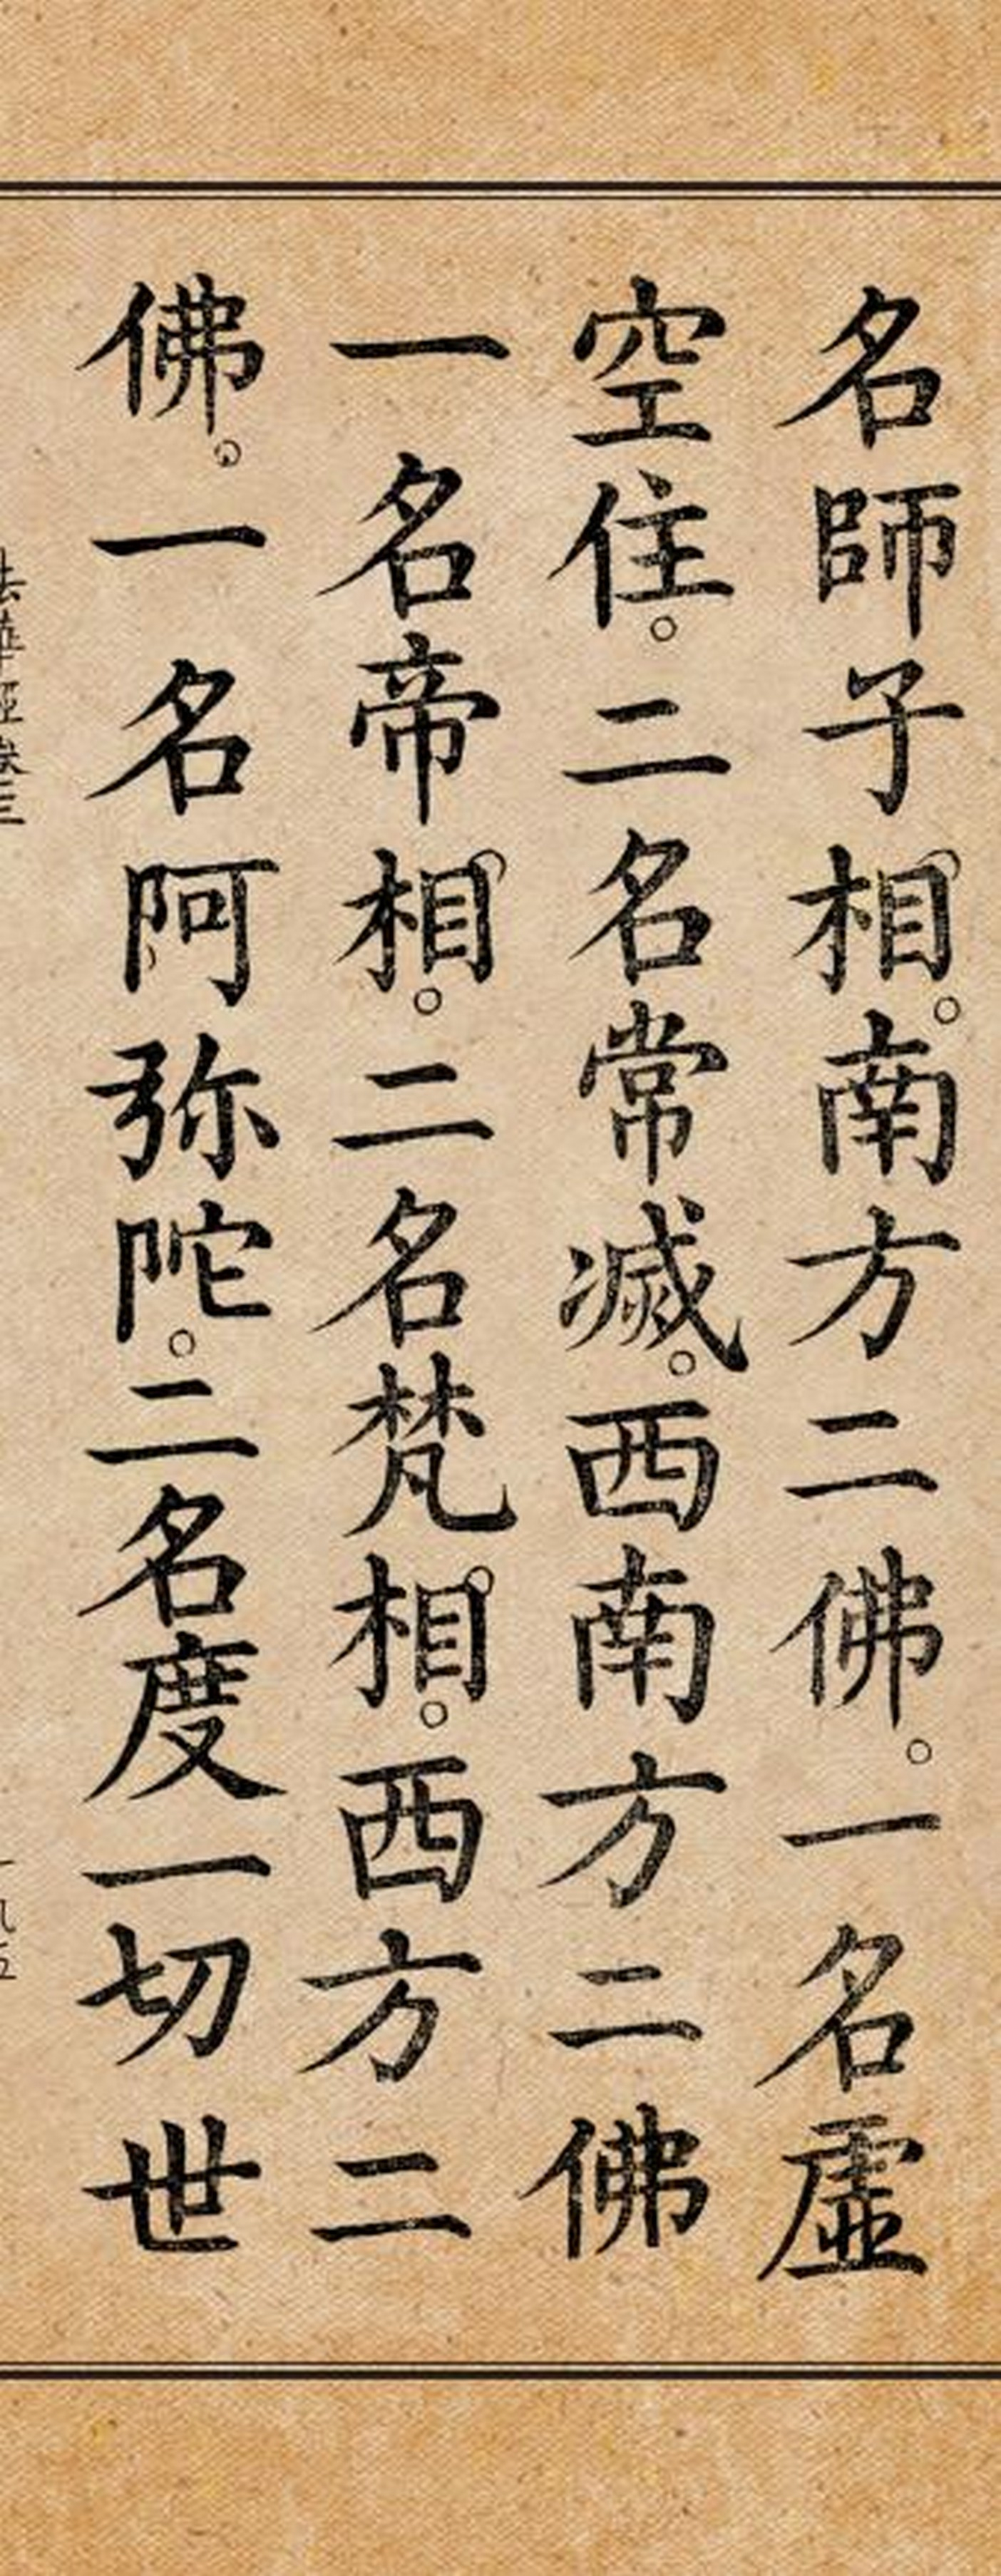 名師子相。南方二佛。一名虛
空住。二名常滅。西南方二佛
一名帝相。二名梵相。西方二
佛。一名阿弥陀。二名度一切世
法華經卷三
一九五